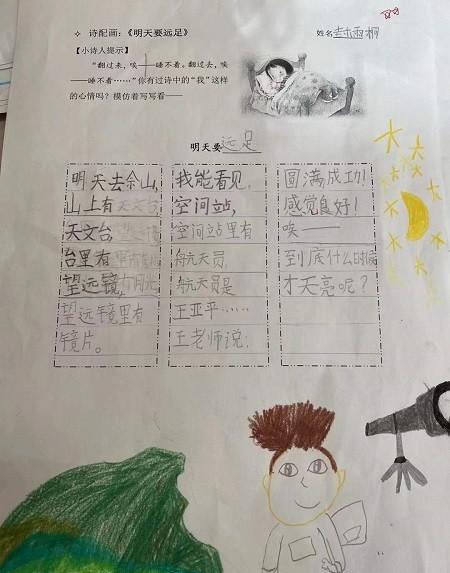 ✧ 诗配画：《明天要远足》
姓名
【小诗人提示】
“翻过来，唉——睡不着。翻过去，唉
——睡不着……”你有过诗中的“我”这样
的心情吗？模仿着写写看——
明天要远足
明天去佘山，
山上有
天文台，
台里有
望远镜，
望远镜里有
镜片。
我能看见，
空间站，
空间站里有
航天员，
航天员是
王亚平……
王老师说：
圆满成功！
感觉良好！
唉——
到底什么时候
才天亮呢？